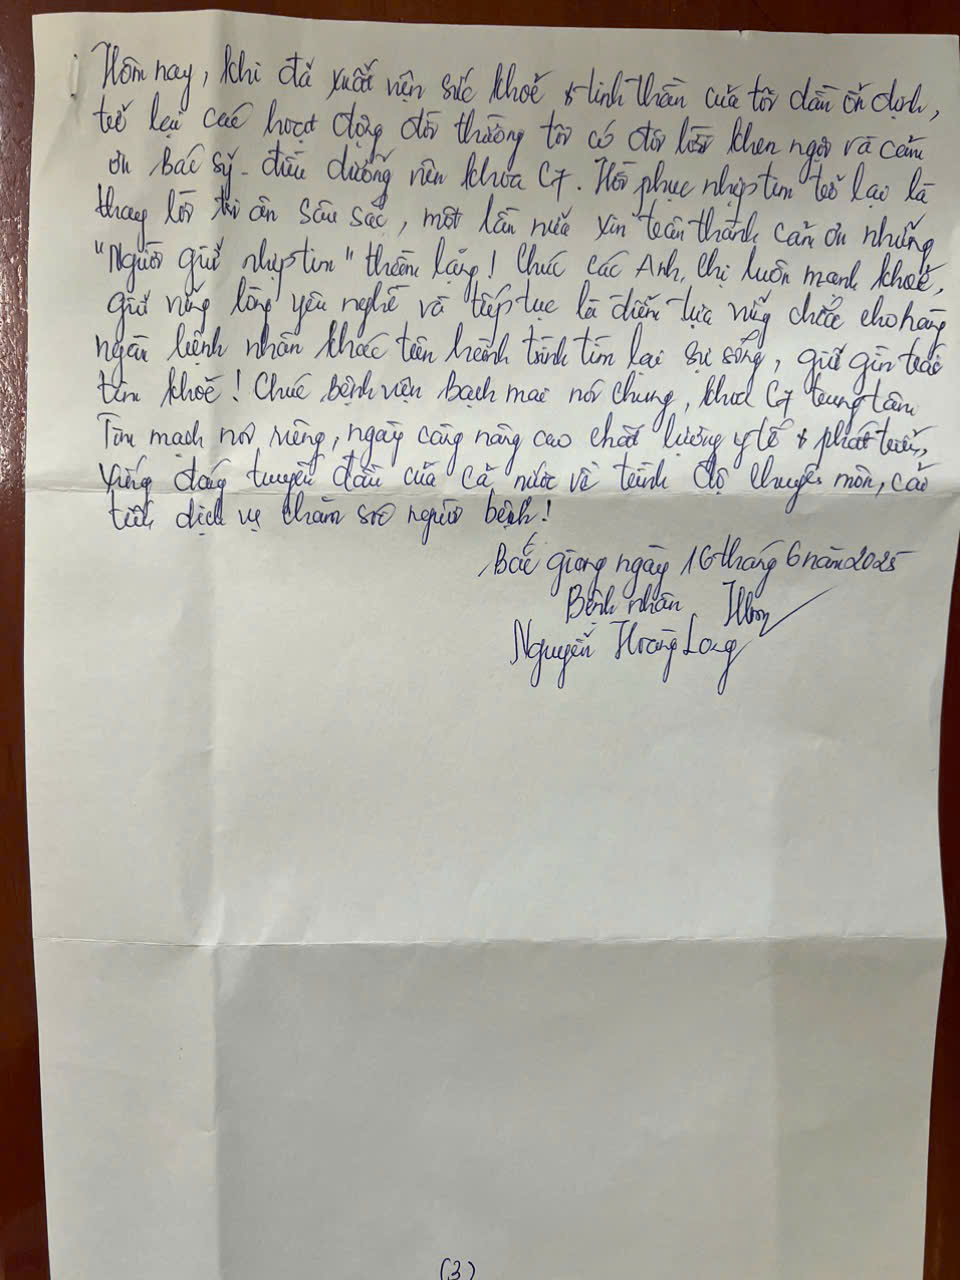 Hôm nay, khi đã xuất viện sức khoẻ & tinh thần của tôi dần ổn định,
trở lại các hoạt động đời thường tôi có đôi lời khen ngợi và cảm
ơn Bác sỹ - điều dưỡng viên khoa C7. Hồi phục nhịp tim trở lại là
thay lời tri ân sâu sắc, một lần nữa xin trân thành cảm ơn những
"Người giữ nhịp tim" thầm lặng! Chúc các Anh, chị luôn mạnh khoẻ,
giữ vững lòng yêu nghề và tiếp tục là điểm tựa vững chắc cho hàng
ngàn bệnh nhân khác trên hành trình tìm lại sự sống, giữ gìn trái
tim khoẻ! Chúc Bệnh viện bạch mai nói chung, khoa C7 trung tâm
Tim mạch nói riêng, ngày càng nâng cao chất lượng y tế & phát triển,
xứng đáng tuyến đầu của cả nước về trình độ chuyên môn, cải
tiến dịch vụ chăm sóc người bệnh!
Bắc giang ngày 16 tháng 6 năm 2025
Bệnh nhân
Nguyễn Hoàng Long
(3)